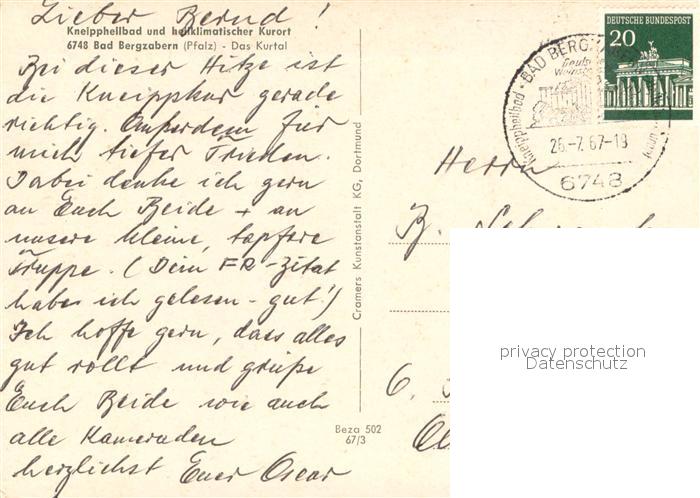 Lieber Bernd!
Kneippheilbad und heilklimatischer Kurort
6748 Bad Bergzabern (Pfalz) - Das Kurtal
Bei dieser Hitze ist
die Kneippkur gerade
richtig. Außerdem für
mich tiefer Frieden.
Dabei denke ich gern
an Euch Beide + an
unsere kleine, tapfere
Truppe. (Dein FR-Zitat
habe ich gelesen - gut!)
Ich hoffe gern, dass alles
gut rollt und grüße
Euch Beide wie auch
alle Kameraden
herzlichst Euer Oscar
Cramers Kunstanstalt KG, Dortmund
Beza 502
67/3
DEUTSCHE BUNDESPOST
20
Kneippheilbad · BAD BERGZ
26.-7.67-19
6748
Herrn
B.
6.
privacy protection
Datenschutz